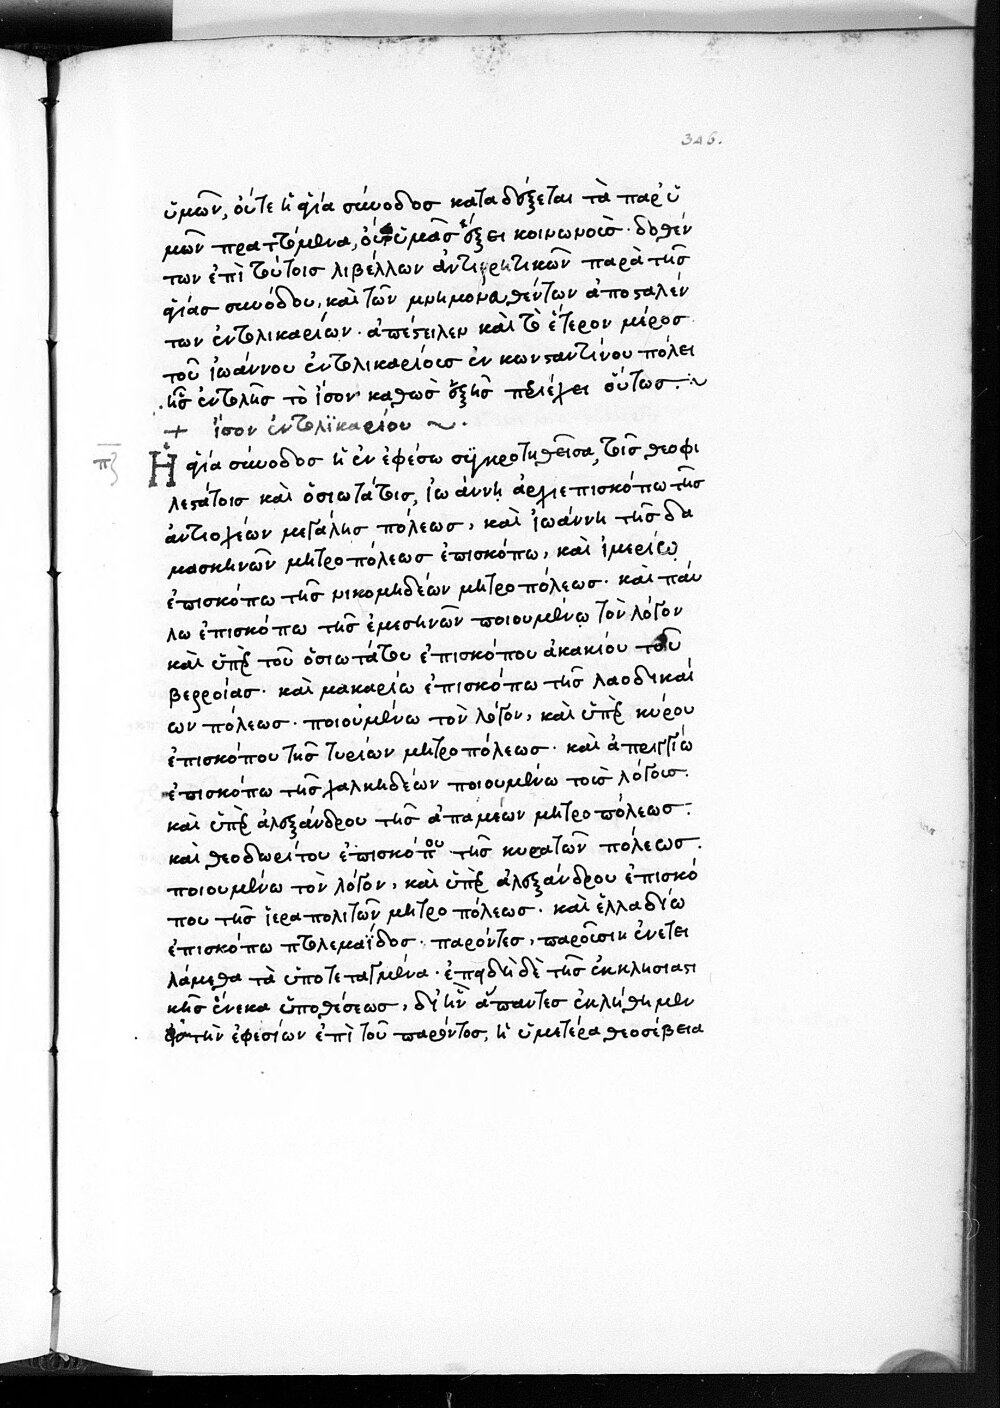 346.
ὑμῶν, οὔτε ἡ ἁγία σύνοδος καταδέξεται τὰ παρ' ὑ
μῶν πραττόμενα, οὔτε ὑμᾶς ἕξει κοινωνούς· δοθέν
των ἐπὶ τούτοις λιβέλλων ἀντιρρητικῶν παρὰ τῆς
ἁγίας συνόδου, καὶ τῶν μνημονευθέντων ἀποσταλέν
των ἐντολικαρίων· ἀπέστειλεν καὶ τὸ ἕτερον μέρος
τοῦ ἰωάννου ἐντολικαρίους ἐν κωνσταντίνου πόλει
ἧς ἐντολῆς τὸ ἴσον καθὼς ἑξῆς περιέχει οὕτως
+ ἴσον ἐντολϊκαρίου
πζ Ἡ ἁγία σύνοδος ἡ ἐν ἐφέσω συγκροτηθεῖσα, τοῖς θεοφι
λεστάτοις καὶ ὁσιωτάτοις, ἰωάννη ἀρχιεπισκόπω τῆς
ἀντιοχέων μεγάλης πόλεως, καὶ ἰωάννη τῆς δα
μασκηνῶν μητροπόλεως ἐπισκόπω, καὶ ἱμερίω
ἐπισκόπω τῆς νικομηδέων μητροπόλεως· καὶ παύ
λω ἐπισκόπω τῆς ἐμεσηνῶν ποιουμένω τὸν λόγον
καὶ ὑπὲρ τοῦ ὁσιωτάτου ἐπισκόπου ἀκακίου τοῦ
βερροίας· καὶ μακαρίω ἐπισκόπω τῆς λαοδικαί
ων πόλεως· ποιουμένω τὸν λόγον, καὶ ὑπὲρ κύρου
ἐπισκόπου τῆς τυρίων μητροπόλεως· καὶ ἀπριγγίω
ἐπισκόπω τῆς χαλκηδέων ποιουμένω τοὺς λόγους·
καὶ ὑπὲρ ἀλεξάνδρου τῆς ἀπαμέων μητροπόλεως·
καὶ θεοδωρίτου ἐπισκόπου τῆς κυρατῶν πόλεως·
ποιουμένω τὸν λόγον, καὶ ὑπὲρ ἀλεξάνδρου ἐπισκό
που τῆς ἱεραπολιτῶν μητροπόλεως· καὶ ἑλλαδίω
ἐπισκόπω πτολεμαΐδος· παρόντες, παροῦσιν ἐνετει
λάμεθα τὰ ὑποτεταγμένα· ἐπειδὴ δὲ τῆς ἐκκλησιαστι
κῆς ἕνεκα ὑποθέσεως, δι' ἣν ἅπαντες ἐκλήθημεν
εἰς τὴν ἐφεσίων ἐπὶ τοῦ παρόντος, ἡ ὑμετέρα θεοσέβεια